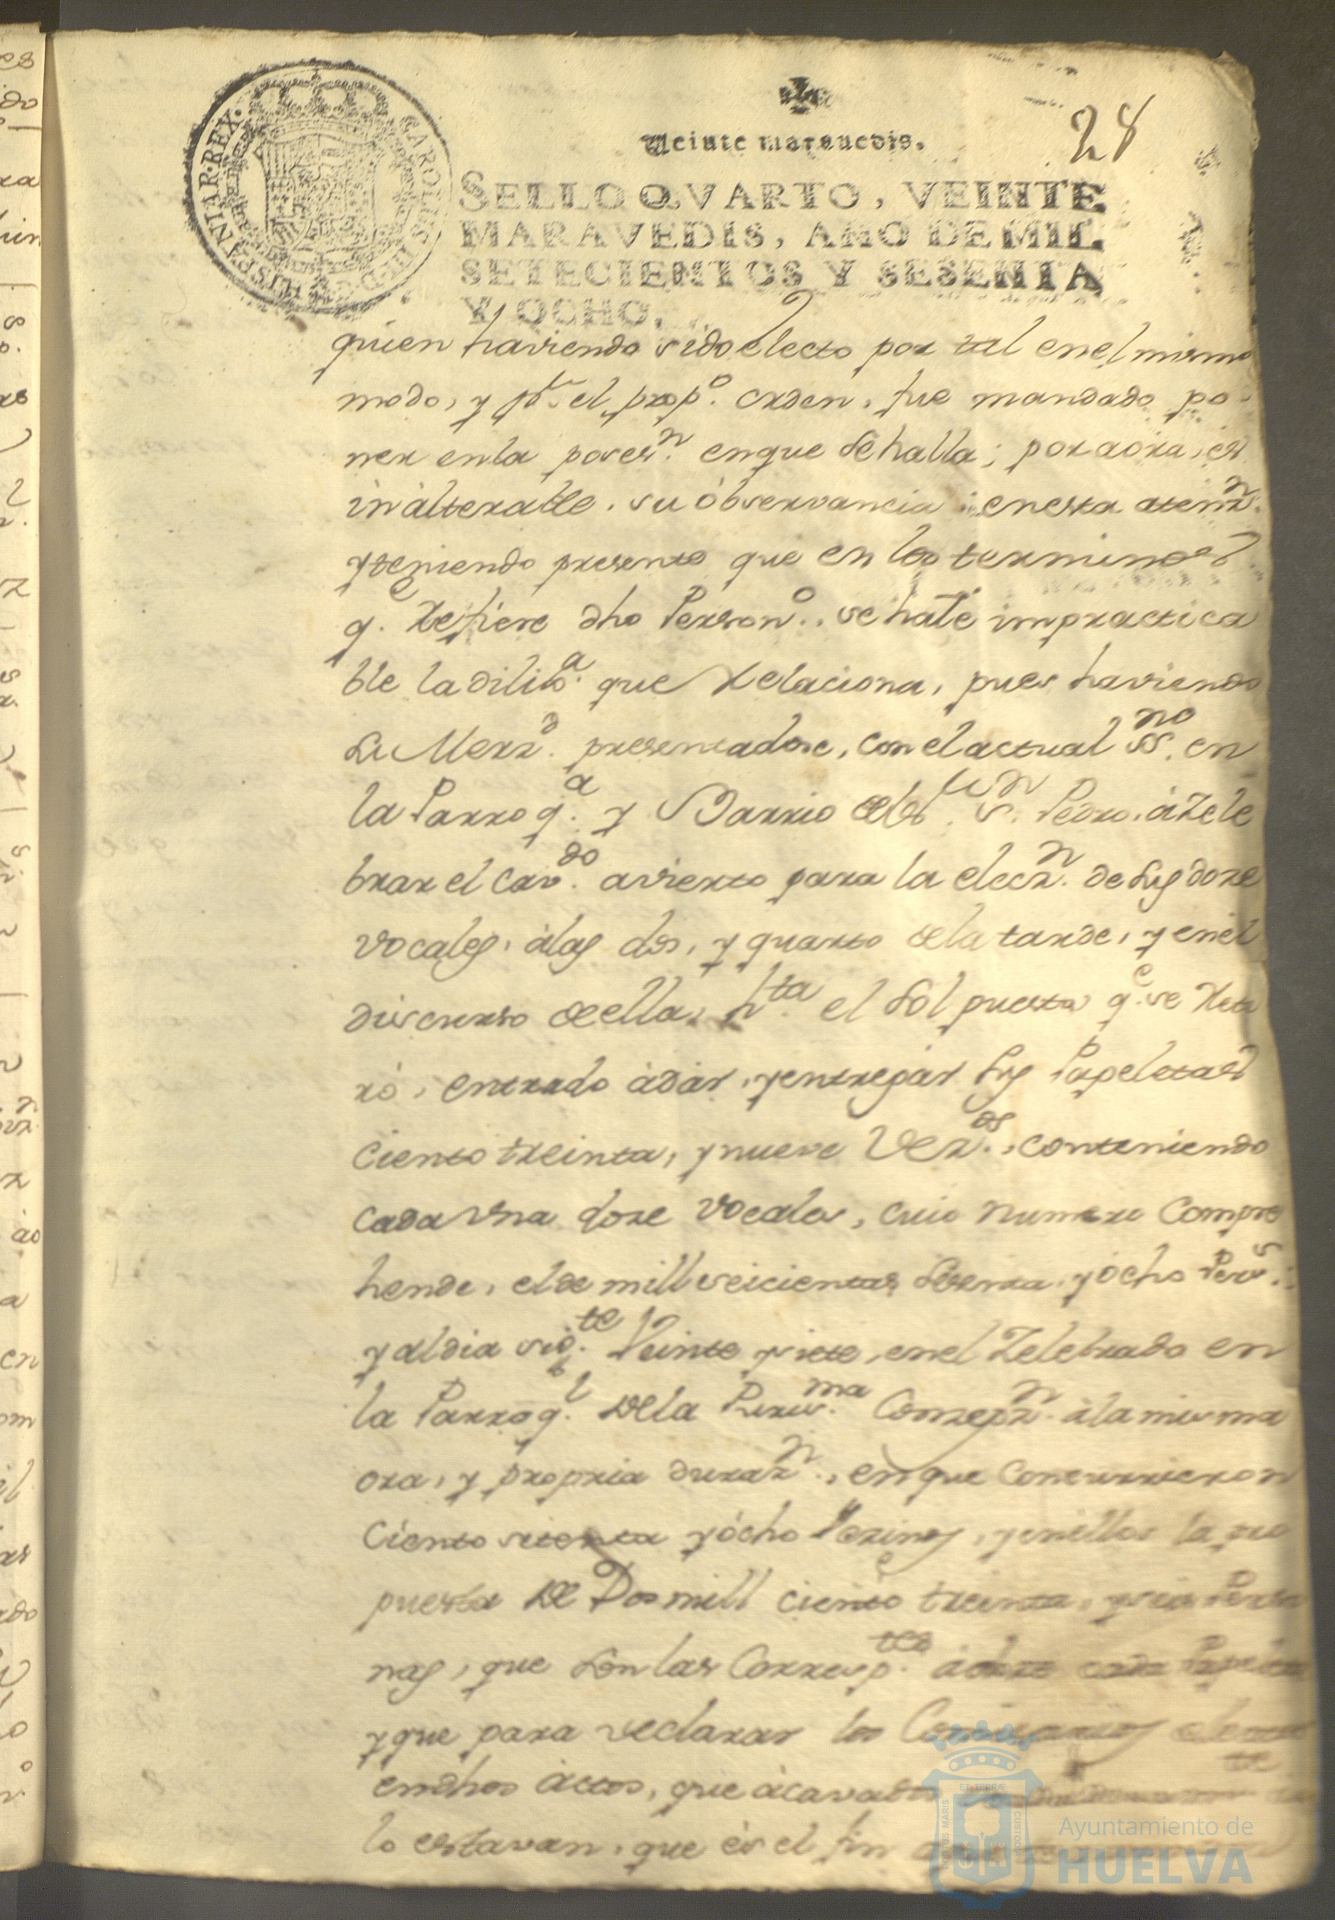 28
Veinte maravedis.
SELLO QVARTO, VEINTE
MARAVEDIS, AÑO DE MIL
SETECIENTOS Y SESENTA
Y OCHO.
CAROLUS HISPANIAR. REX.
quien haviendo sido electo por tal en el mismo
modo, y el prop.º orden, fue mandado po-
ner en la poses.n en que se halla; por aora, es
inalterable su observancia: en esta atenz.n
y teniendo presente que en los terminos
q.e refiere dho Person.º, se hase impractica
ble la dilig.a que relaciona, pues haviendo
su Merz.d presentadose, con el actual ss.no en
la Parroq.a y Barrio del S.n Pedro, á Zele
brar el cav.do avierto para la elecz.n de los doze
vocales, á las dos, y quarto de la tarde, y en el
discurso de ella, h.ta el sol puesto q.e se reti
ró, entrado á dar, y entregar las Papeletas
ciento treinta, y nueve Vez.os, conteniendo
cada una doze vocales, cuio numero compre
hende, el de mill seicientas sesenta, y ocho Pers.s:
y al dia sig.te Veinte y siete, en el Zelebrado en
la Parroq.l de la Puris.ma Conzepz.n á la misma
ora, y propria duraz.n, en que concurrieron
ciento setenta y ócho Vezinos, y en ellos la pro
puesta de Dos mill ciento treinta, y seis Perso
nas, que son las Corresp.tes á doze cada Papeleta
y que para declarar los Comisarios
en dhos actos, que acavados
lo estavan, que és el fin
Ayuntamiento de
HUELVA